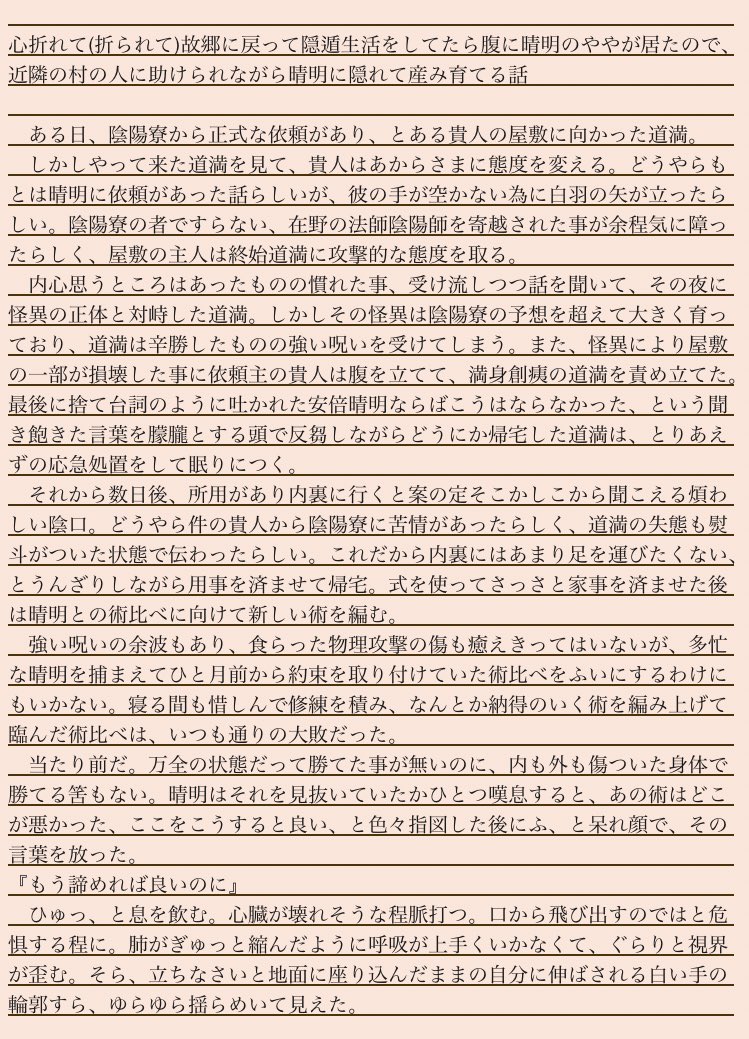 心折れて(折られて)故郷に戻って隠遁生活をしてたら腹に晴明のややが居たので、
近隣の村の人に助けられながら晴明に隠れて産み育てる話
　ある日、陰陽寮から正式な依頼があり、とある貴人の屋敷に向かった道満。
　しかしやって来た道満を見て、貴人はあからさまに態度を変える。どうやらも
とは晴明に依頼があった話らしいが、彼の手が空かない為に白羽の矢が立ったら
しい。陰陽寮の者ですらない、在野の法師陰陽師を寄越された事が余程気に障っ
たらしく、屋敷の主人は終始道満に攻撃的な態度を取る。
　内心思うところはあったものの慣れた事、受け流しつつ話を聞いて、その夜に
怪異の正体と対峙した道満。しかしその怪異は陰陽寮の予想を超えて大きく育っ
ており、道満は辛勝したものの強い呪いを受けてしまう。また、怪異により屋敷
の一部が損壊した事に依頼主の貴人は腹を立てて、満身創痍の道満を責め立てた。
最後に捨て台詞のように吐かれた安倍晴明ならばこうはならなかった、という聞
き飽きた言葉を朦朧とする頭で反芻しながらどうにか帰宅した道満は、とりあえ
ずの応急処置をして眠りにつく。
　それから数日後、所用があり内裏に行くと案の定そこかしこから聞こえる煩わ
しい陰口。どうやら件の貴人から陰陽寮に苦情があったらしく、道満の失態も熨
斗がついた状態で伝わったらしい。これだから内裏にはあまり足を運びたくない、
とうんざりしながら用事を済ませて帰宅。式を使ってさっさと家事を済ませた後
は晴明との術比べに向けて新しい術を編む。
　強い呪いの余波もあり、食らった物理攻撃の傷も癒えきってはいないが、多忙
な晴明を捕まえてひと月前から約束を取り付けていた術比べをふいにするわけに
もいかない。寝る間も惜しんで修練を積み、なんとか納得のいく術を編み上げて
臨んだ術比べは、いつも通りの大敗だった。
　当たり前だ。万全の状態だって勝てた事が無いのに、内も外も傷ついた身体で
勝てる筈もない。晴明はそれを見抜いていたかひとつ嘆息すると、あの術はどこ
が悪かった、ここをこうすると良い、と色々指図した後にふ、と呆れ顔で、その
言葉を放った。
『もう諦めれば良いのに』
　ひゅっ、と息を飲む。心臓が壊れそうな程脈打つ。口から飛び出すのではと危
惧する程に。肺がぎゅっと縮んだように呼吸が上手くいかなくて、ぐらりと視界
が歪む。そら、立ちなさいと地面に座り込んだままの自分に伸ばされる白い手の
輪郭すら、ゆらゆら揺らめいて見えた。